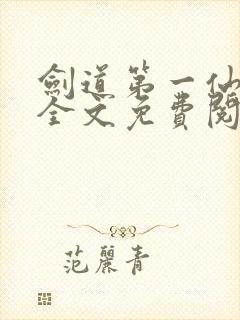 劍道第一仙
全文免費閱
范麗青